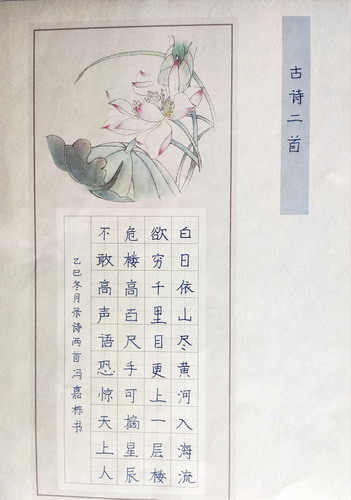 古诗二首
白日依山尽黄河入海流
欲穷千里目更上一层楼
危楼高百尺手可摘星辰
不敢高声语恐惊天上人
乙巳冬月录诗两首冯嘉栎书